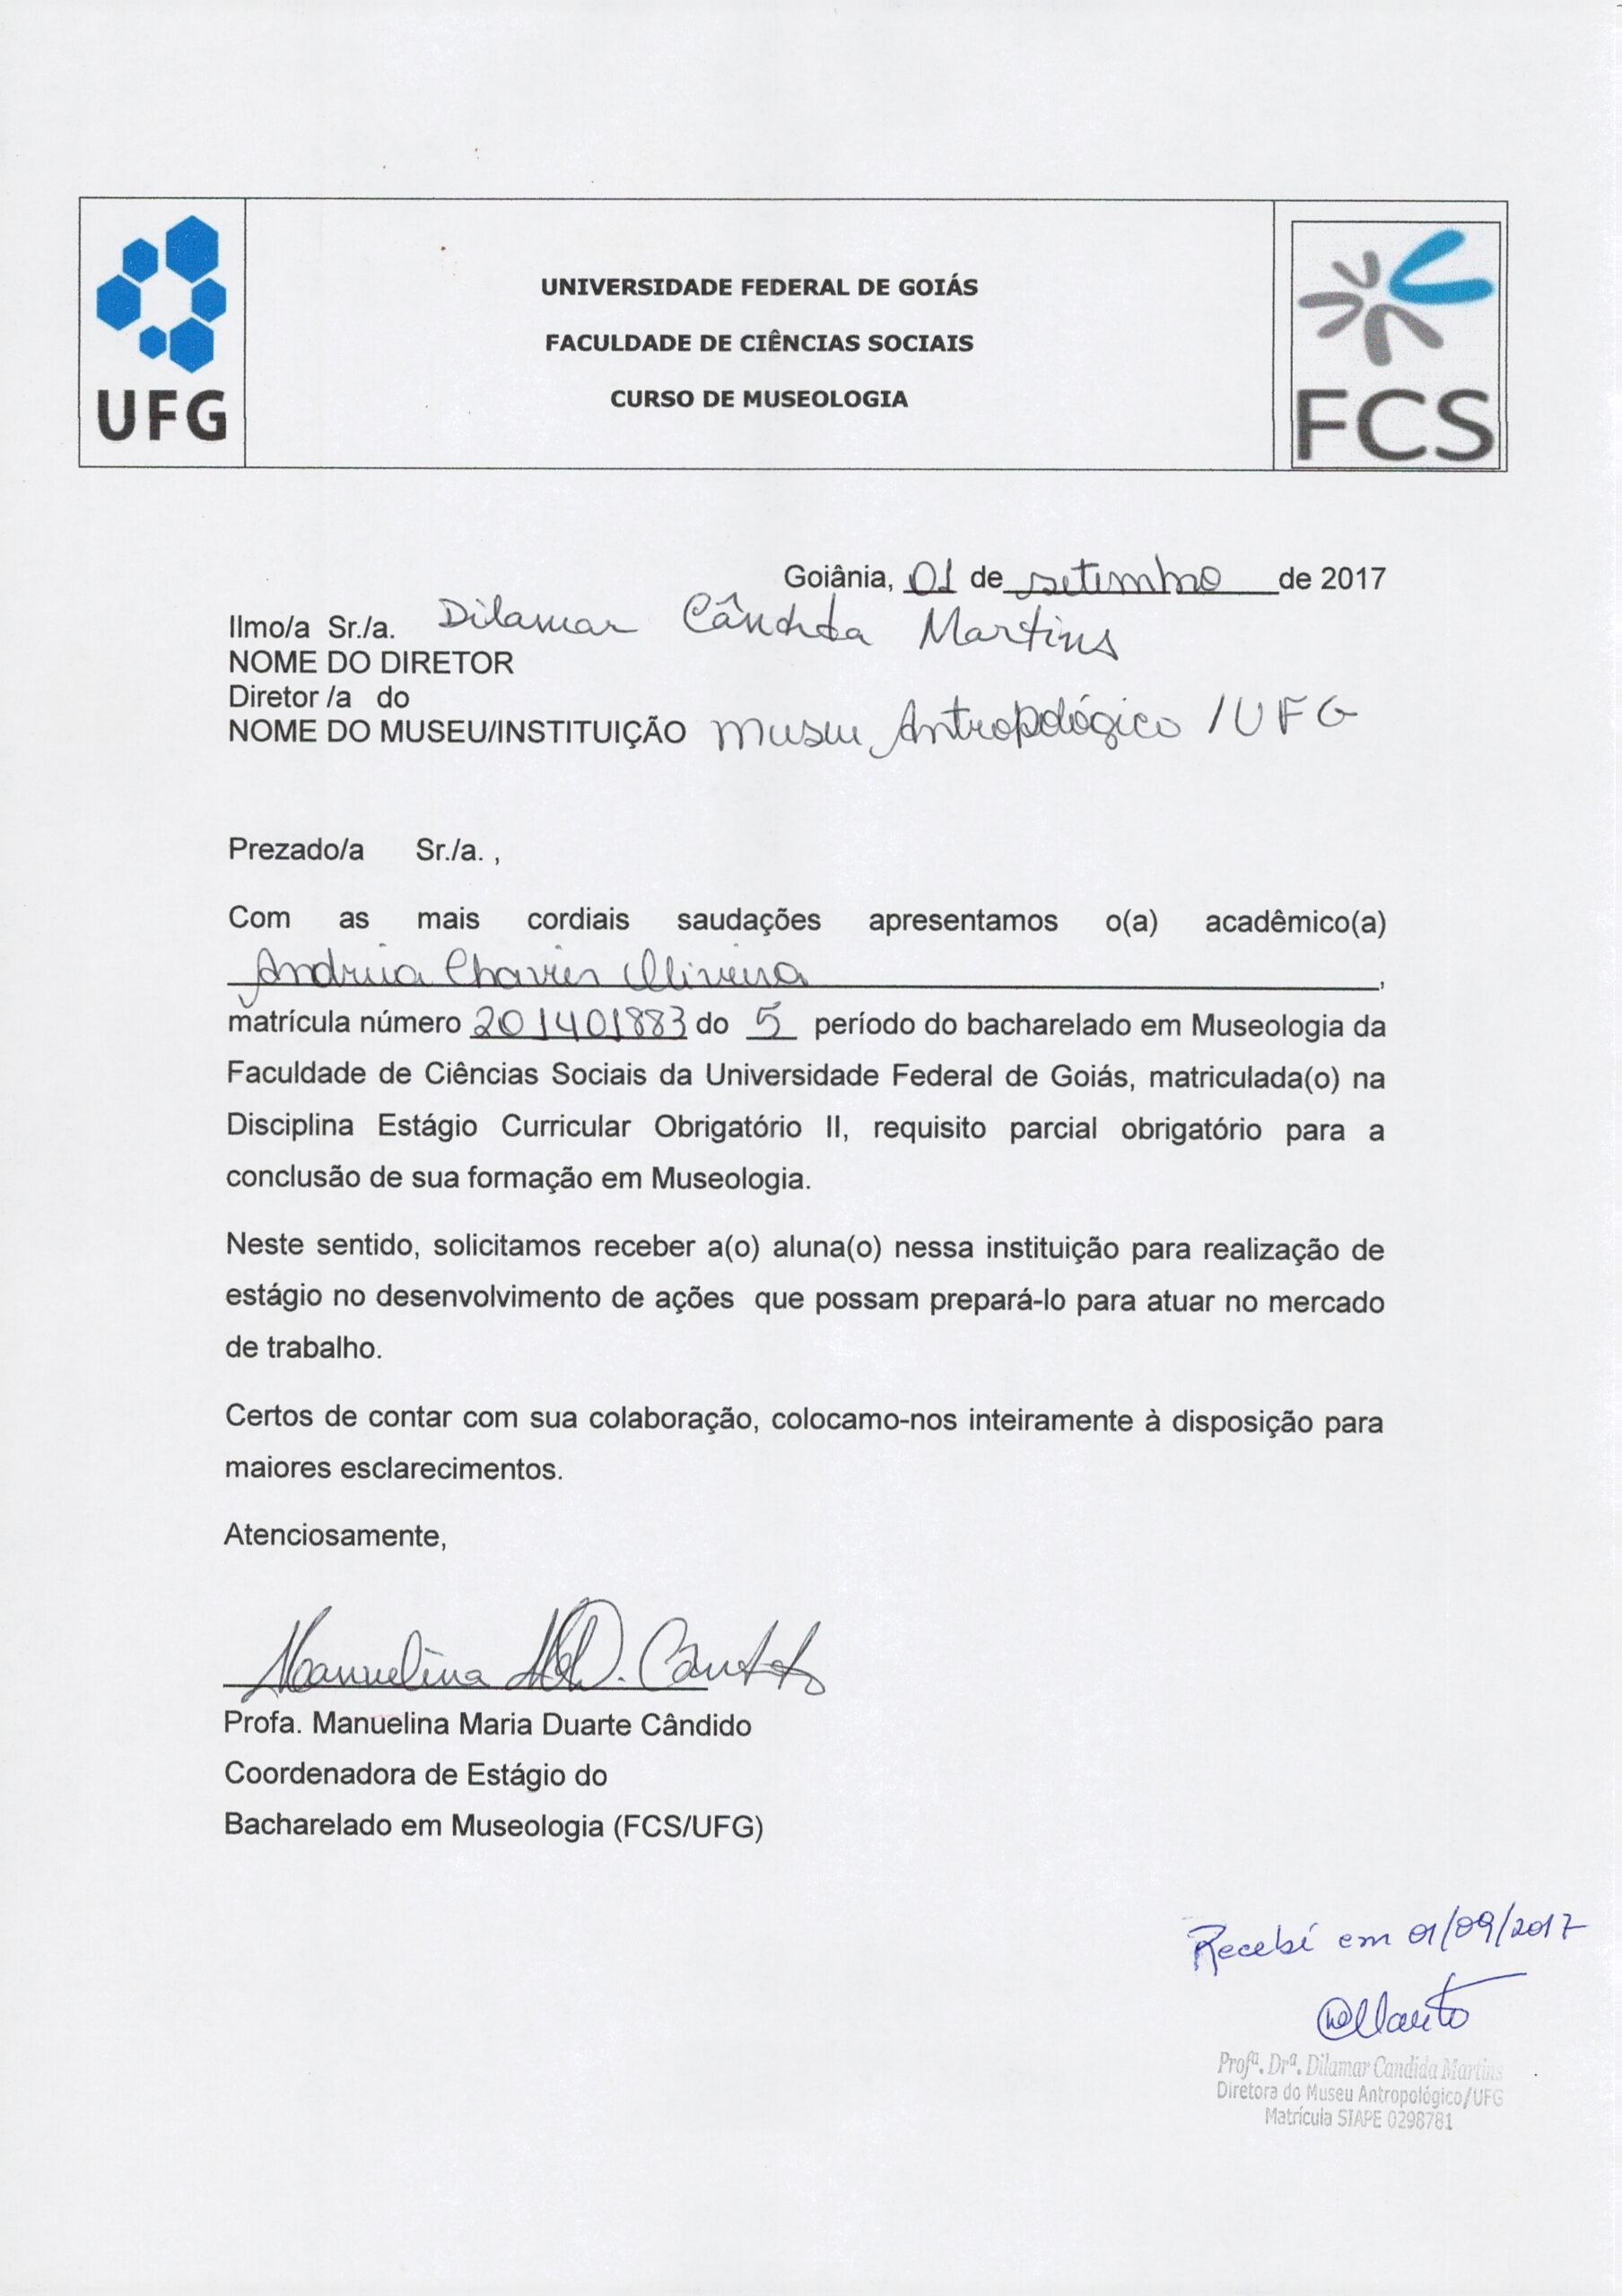 UFG
UNIVERSIDADE FEDERAL DE GOIÁS
FACULDADE DE CIÊNCIAS SOCIAIS
CURSO DE MUSEOLOGIA
FCS
Goiânia, 01 de setembro de 2017
Ilmo/a Sr./a. Dilamar Cândida Martins
NOME DO DIRETOR
Diretor /a do
NOME DO MUSEU/INSTITUIÇÃO Museu Antropológico /UFG
Prezado/a Sr./a. ,
Com as mais cordiais saudações apresentamos o(a) acadêmico(a)
Andreia Chaves Oliveira,
matrícula número 201401883 do 5 período do bacharelado em Museologia da
Faculdade de Ciências Sociais da Universidade Federal de Goiás, matriculada(o) na
Disciplina Estágio Curricular Obrigatório II, requisito parcial obrigatório para a
conclusão de sua formação em Museologia.
Neste sentido, solicitamos receber a(o) aluna(o) nessa instituição para realização de
estágio no desenvolvimento de ações que possam prepará-lo para atuar no mercado
de trabalho.
Certos de contar com sua colaboração, colocamo-nos inteiramente à disposição para
maiores esclarecimentos.
Atenciosamente,
Manuelina
Profa. Manuelina Maria Duarte Cândido
Coordenadora de Estágio do
Bacharelado em Museologia (FCS/UFG)
Recebí em 01/09/2017
Profª. Drª. Dilamar Candida Martins
Diretora do Museu Antropológico/UFG
Matrícula SIAPE 0298781